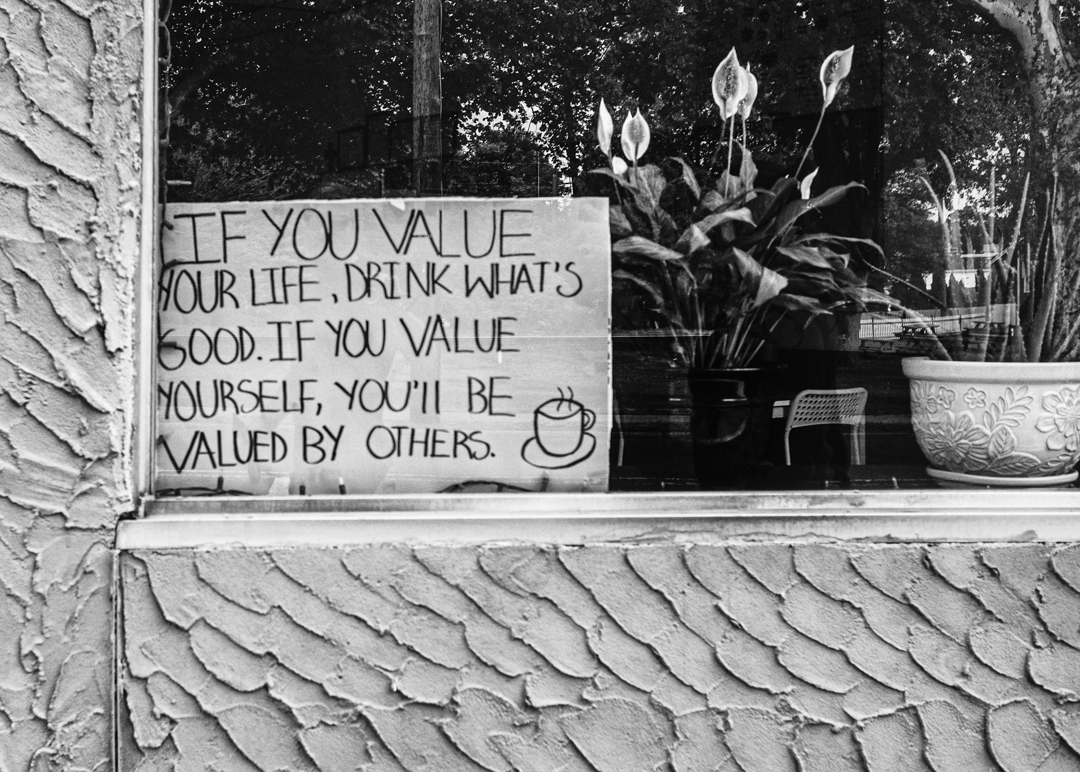 IF YOU VALUE
YOUR LIFE, DRINK WHAT'S
GOOD. IF YOU VALUE
YOURSELF, YOU'll BE
VALUED BY OTHERS.